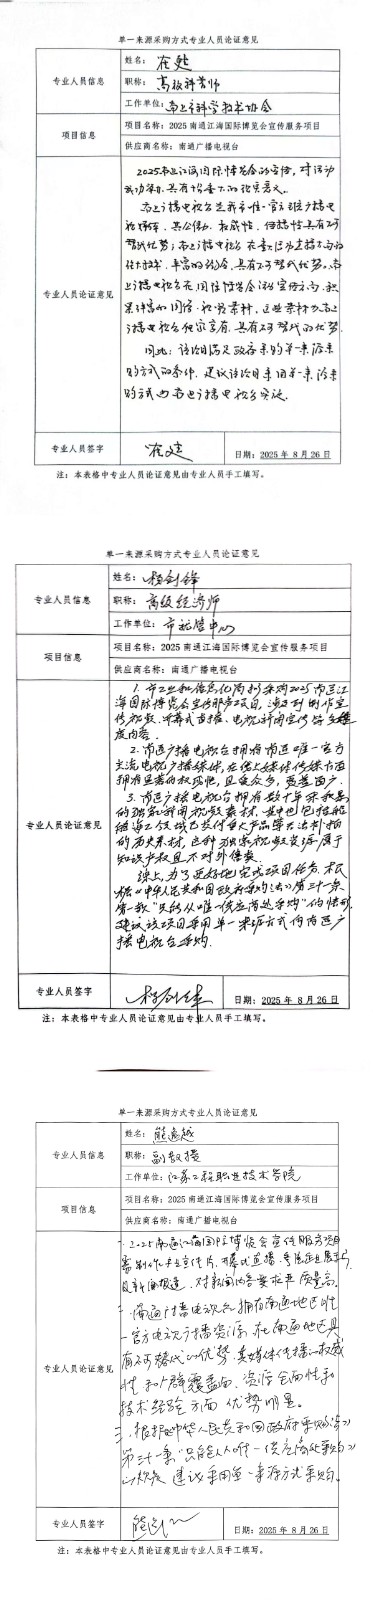 单一来源采购方式专业人员论证意见
专业人员信息
姓名:
职称: 高级科普师
工作单位: 南通市科学技术协会
项目信息
项目名称: 2025 南通江海国际博览会宣传服务项目
供应商名称: 南通广播电视台
专业人员论证意见
2025南通江海国际博览会的宣传, 对活动
成功举办具有
南通广播电视台是我市唯一官方 广播电
视媒体, 其公信力、权威性、传播性具有不可
替代优势; 南通广播电视台在重大活动直播方面
技术、丰富的经验, 具有不可替代优势。南
通广播电视台在国际博览会活动宣传方面, 积
累丰富的图信、视频素材, 这些素材为南通
广播电视台独家享有, 具有不可替代的优势。
因此: 该项目满足政府采购单一来源采
购方式的条件, 建议该项目采用单一来源采
购方式由南通广播电视台实施。
专业人员签字
日期: 2025 年 8 月 26 日
注: 本表格中专业人员论证意见由专业人员手工填写。
单一来源采购方式专业人员论证意见
专业人员信息
姓名: 杨剑锋
职称: 高级经济师
工作单位:
项目信息
项目名称: 2025 南通江海国际博览会宣传服务项目
供应商名称: 南通广播电视台
专业人员论证意见
1. 市工业和信息化局拟采购2025南通江
海国际博览会宣传服务项目, 涉及到制作宣
传视频、开幕式直播、电视新闻宣传等多维
度内容。
2. 南通广播电视台拥有南通唯一官方
主流电视广播媒体, 在传统媒体传播方面
拥有显著的权威性, 且受众多, 覆盖面广。
3. 南通广播电视台拥有数十年来积累
的独家新闻视频素材, 其中也包括船
舶海工领域已交付重大产品等无法补拍
的历史素材, 这种独家视频资源, 属于
知识产权且不对外售卖。
综上, 为了更好地完成项目任务, 根
据《中华人民共和国政府采购法》第三十一条
第一款“只能从唯一供应商处采购”的情形,
建议该项目采用单一来源方式向南通广
播电视台采购。
专业人员签字
日期: 2025 年 8 月 26 日
注: 本表格中专业人员论证意见由专业人员手工填写。
单一来源采购方式专业人员论证意见
专业人员信息
姓名: 熊逸越
职称: 副教授
工作单位: 江苏工程职业技术学院
项目信息
项目名称: 2025 南通江海国际博览会宣传服务项目
供应商名称: 南通广播电视台
专业人员论证意见
一、2025南通江海国际博览会宣传服务项目
需制作专业宣传片、开幕式直播、
及新闻报道, 对新闻内容要求高 质量高。
二、南通广播电视台拥有南通地区唯
一官方电视广播资源, 在南通地区具
有不可替代的优势, 其媒体传播的权威
性和人群覆盖面、资源全面性和
技术经验方面 优势明显。
三、根据《中华人民共和国政府采购法》
第三十一条“只能从唯一供应商处采购”
的规定 建议采用单一来源方式采购。
专业人员签字
日期: 2025 年 8 月 26 日
注: 本表格中专业人员论证意见由专业人员手工填写。